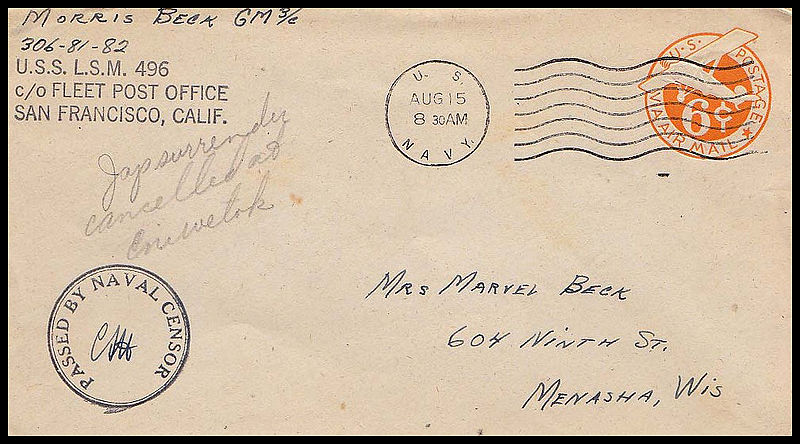 MORRIS BECK GM 3/c
306-81-82
U.S.S. L.S.M. 496
c/o FLEET POST OFFICE
SAN FRANCISCO, CALIF.
Jap surrender
cancelled at
Eniwetok
U. S.
AUG 15
8 30AM
NAVY.
U.S. POSTAGE
6¢
VIA AIR MAIL
PASSED BY NAVAL CENSOR
MRS MARVEL BECK
604 NINTH ST.
MENASHA, WIS